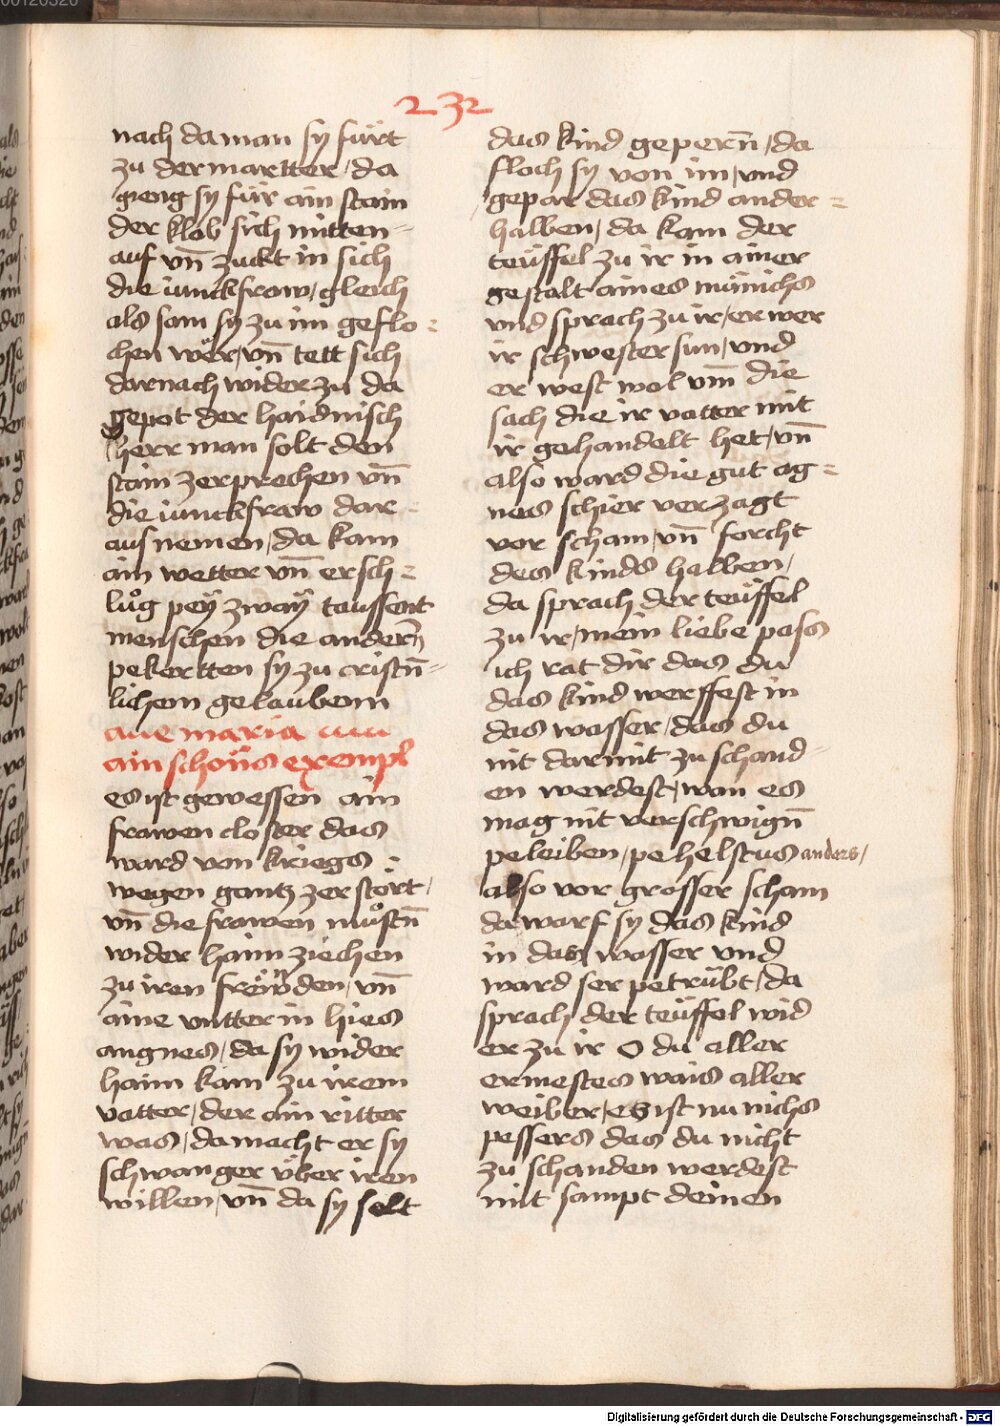 232
nach da man sy fürt
zu der martter / da
gieng sy für ain stain
der klob sich mitten=
auf vn̄ zuckt in sich
die iunckfraw / gleich
als sam sy zu im geflo=
chen wër / vn̄ tett sich
darnach wider zu da
gepot der haidnisch
herr man solt den
stain zerprechen vn̄
die iunckfraw dar=
aus nemen / da kam
ain wetter vn̄ ersch=
luͦg peÿ zwaÿ taussent
menschen die andern̄
pekertten sy zu cristn̄=
lichem gelaubenn
aue maria
ain schöns exempl
es ist gewessen ain
frawen closter das
ward von kriegs
wegen gantz zerstört /
vn̄ die frawen muͦstn̄
wider haim ziechen
zu iren frëwnden / vn̄
aine vntter in hies
angnes / da sy wider
haim kam zu irem
vatter / der ain ritter
was / da macht er sy
schwanger über iren
willen / vn̄ da sy solt
das kind gepern̄ / da
floch sy von im / vnd
gepar das kind ander=
halben / da kam der
teüffel zu ir in ainer
gestalt aines münichs
vnd sprach zu ir / er wer
ir schwester sun / vnd
er west wol vm̄ die
sach die ir vatter mit
ir gehandelt het / vn̄
also ward die gut ag=
nes schier verzagt
vor scham / vn̄ forcht
des kinds halben /
da sprach der teüffel
zu ir / mein liebe pass
ich rat dir das du
das kind werffest in
das wasser / das du
nit darmit zu schand=
en werdest / wan es
mag nit verschwign̄
peleiben / pehelstus anders /
also vor grosser scham
da warf sy das kind
in das wasser vnd
ward ser petrübt / da
sprach der teüffel wid
er zu ir O du aller
ermestes wais aller
weiber / es ist nu nichs
pessers das du nicht
zu schanden werdest
mit sampt deinen
Digitalisierung gefördert durch die Deutsche Forschungsgemeinschaft - DFG